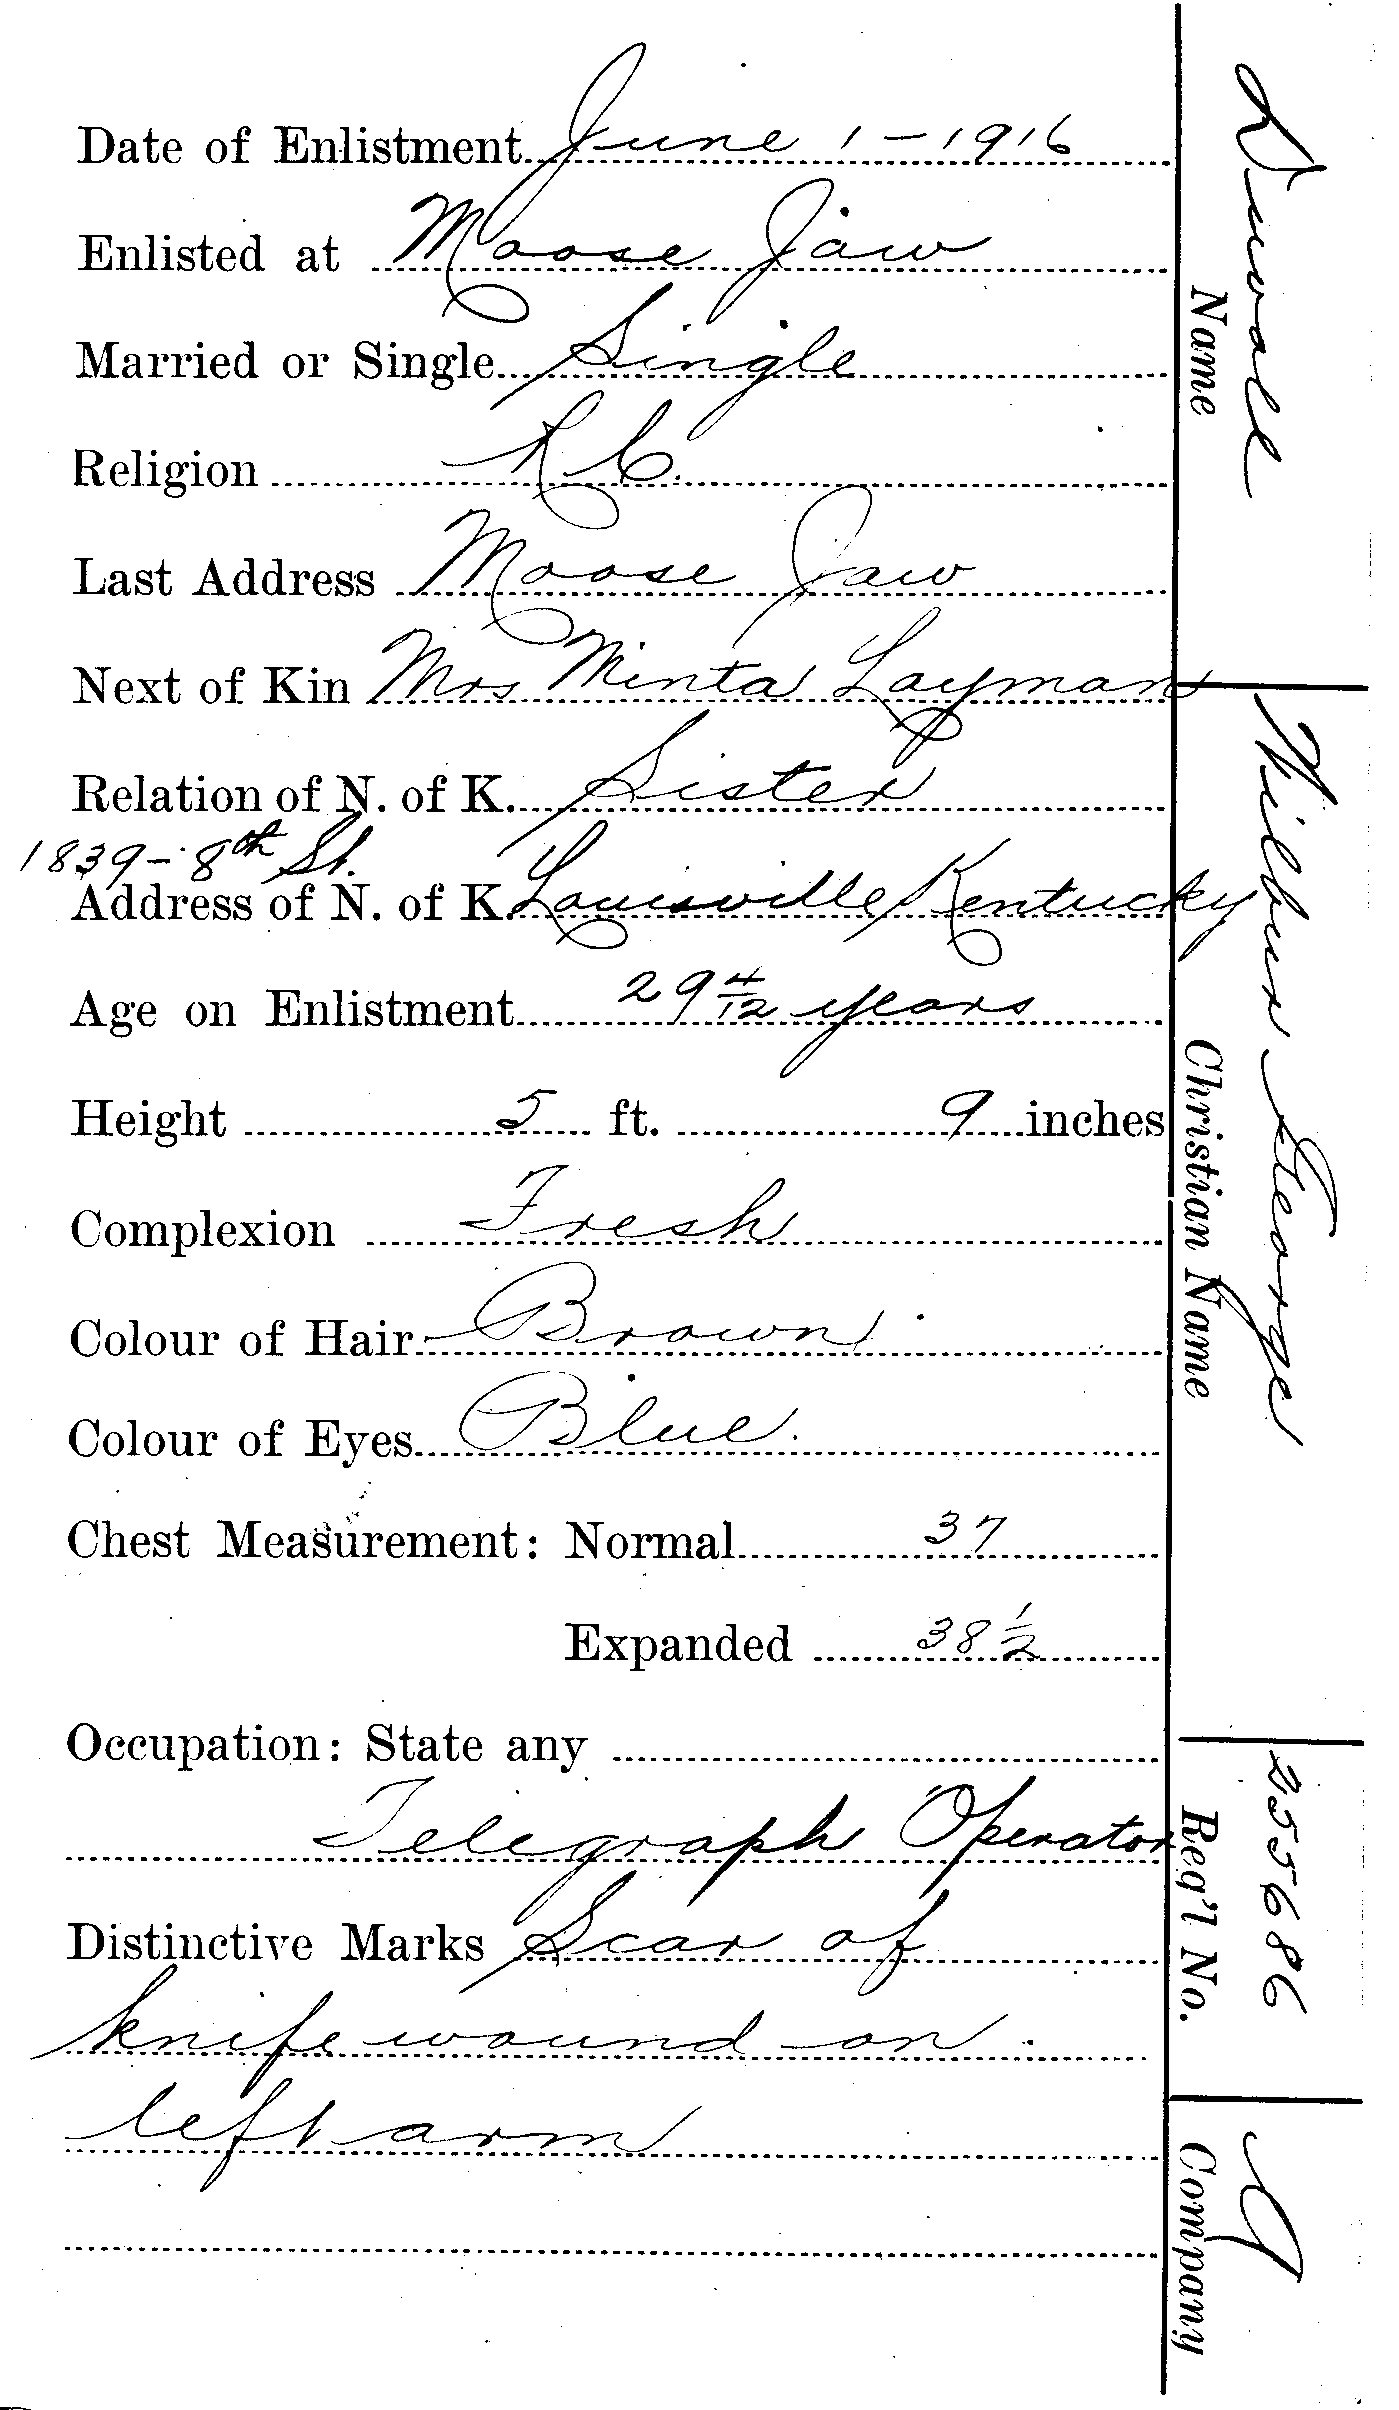 Date of Enlistment June 1 - 1916
Enlisted at Moose Jaw
Married or Single Single
Religion R C.
Last Address Moose Jaw
Next of Kin Mrs Minta Layman
Relation of N. of K. Sister
1839 - 8th St.
Address of N. of K. Louisville Kentucky
Age on Enlistment 29 4/12 years
Height 5 ft. 9 inches
Complexion Fresh
Colour of Hair Brown
Colour of Eyes Blue.
Chest Measurement: Normal 37
Expanded 38 1/2
Occupation: State any
Telegraph Operator
Distinctive Marks Scar of
knife wound on
left arm
Duvall
Name
Wilbur George
Christian Name
255686
Reg'l No.
Company